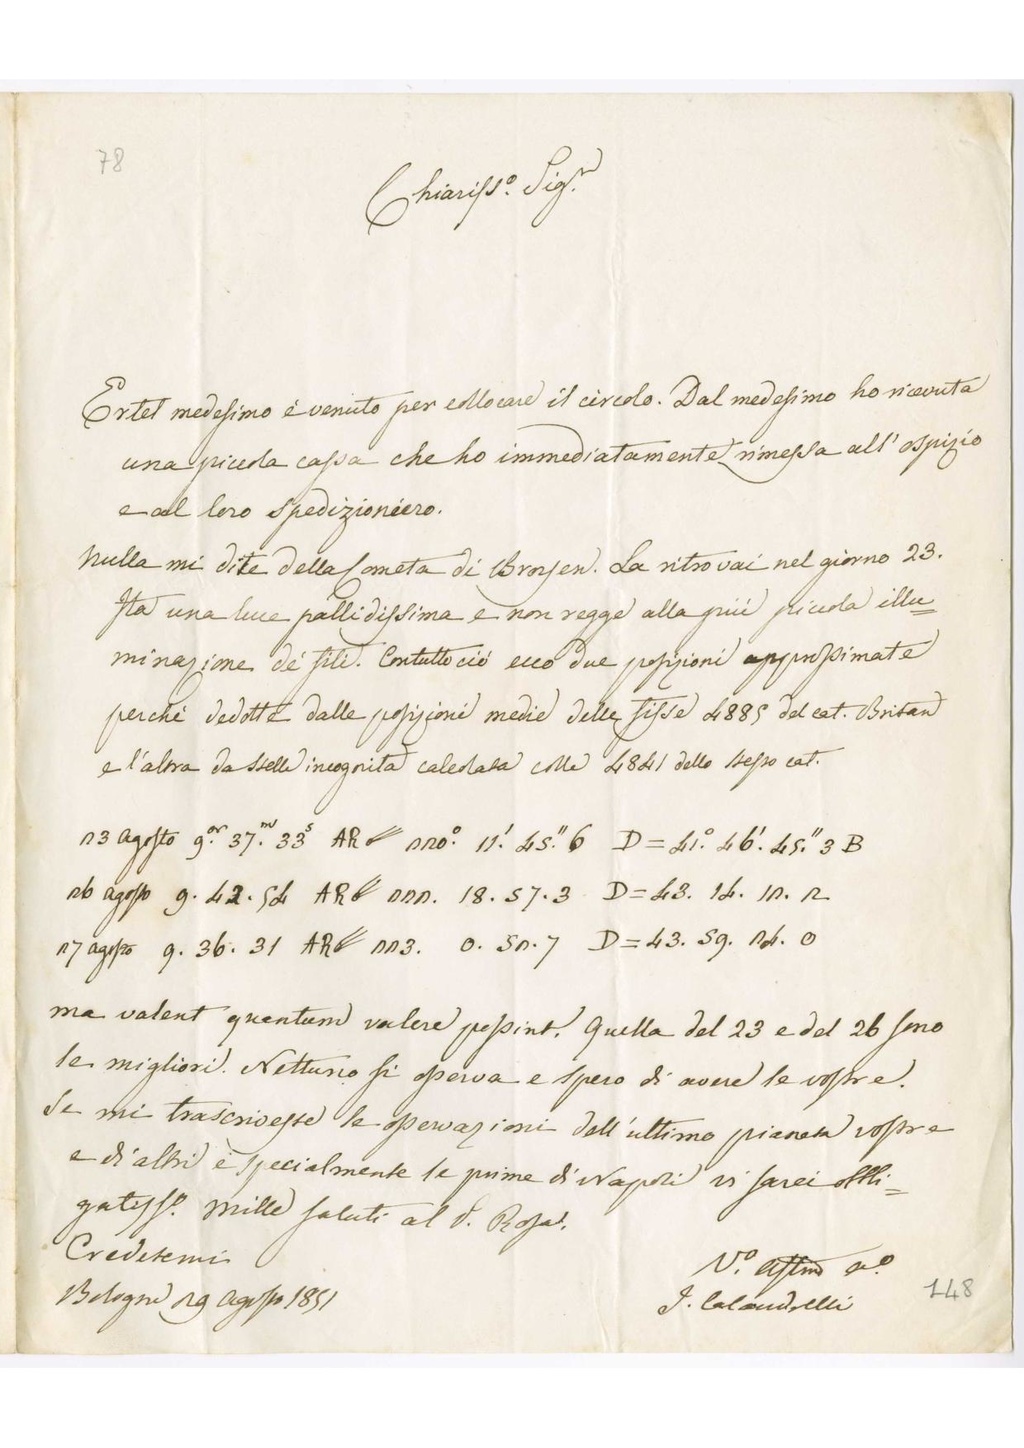 78
Chiariss.º Sig.r
Ertel medesimo è venuto per collocare il circolo. Dal medesimo ho ricevuta
una piccola cassa che ho immediatamente rimessa all' ospizio
e al loro spedizioniero.
Nulla mi dite della Cometa di Brorsen. La ritrovai nel giorno 23.
Ha una luce pallidissima e non regge alla più piccola illu=
minazione de' fili. Contuttociò ecco due posizioni approssimate
perché dedotte dalle posizioni medie delle fisse 4885 del cat. Britan
e l'altra da stella incognita calcolata colla 4841 dello stesso cat.
23 agosto 9.or 37.m 33s AR 220.º 11.' 45." 6 D = 41.º 46.' 45." 3 B
26 agosto 9. 42. 54 AR 222. 18. 57. 3 D = 43. 14. 12. 2
27 agosto 9. 36. 31 AR 223. 0. 52. 7 D = 43. 59. 24. 0
ma valent quantum valere possint. Quella del 23 e del 26 sono
le migliori. Nettuno si osserva e spero di avere le vostre.
Se mi trascriveste le osservazioni dell'ultimo pianeta vostre
e di altri e specialmente le prime di Napoli vi sarei obbli=
gatiss.º Mille saluti al P. Rosa.
Credetemi
Vº. Affmo aº.
Bologna 29 agosto 1851
I. Calandrelli
148